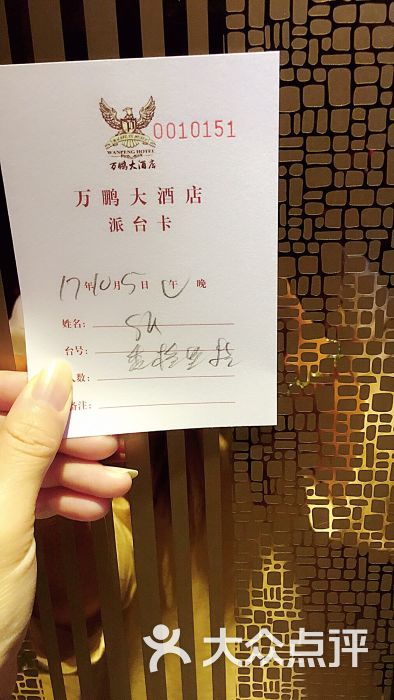 0010151
WANPENG HOTEL
万鹏大酒店
万鹏大酒店
派台卡
17年10月5日午晚
姓名: SU
台号:
人数:
备注:
大众点评